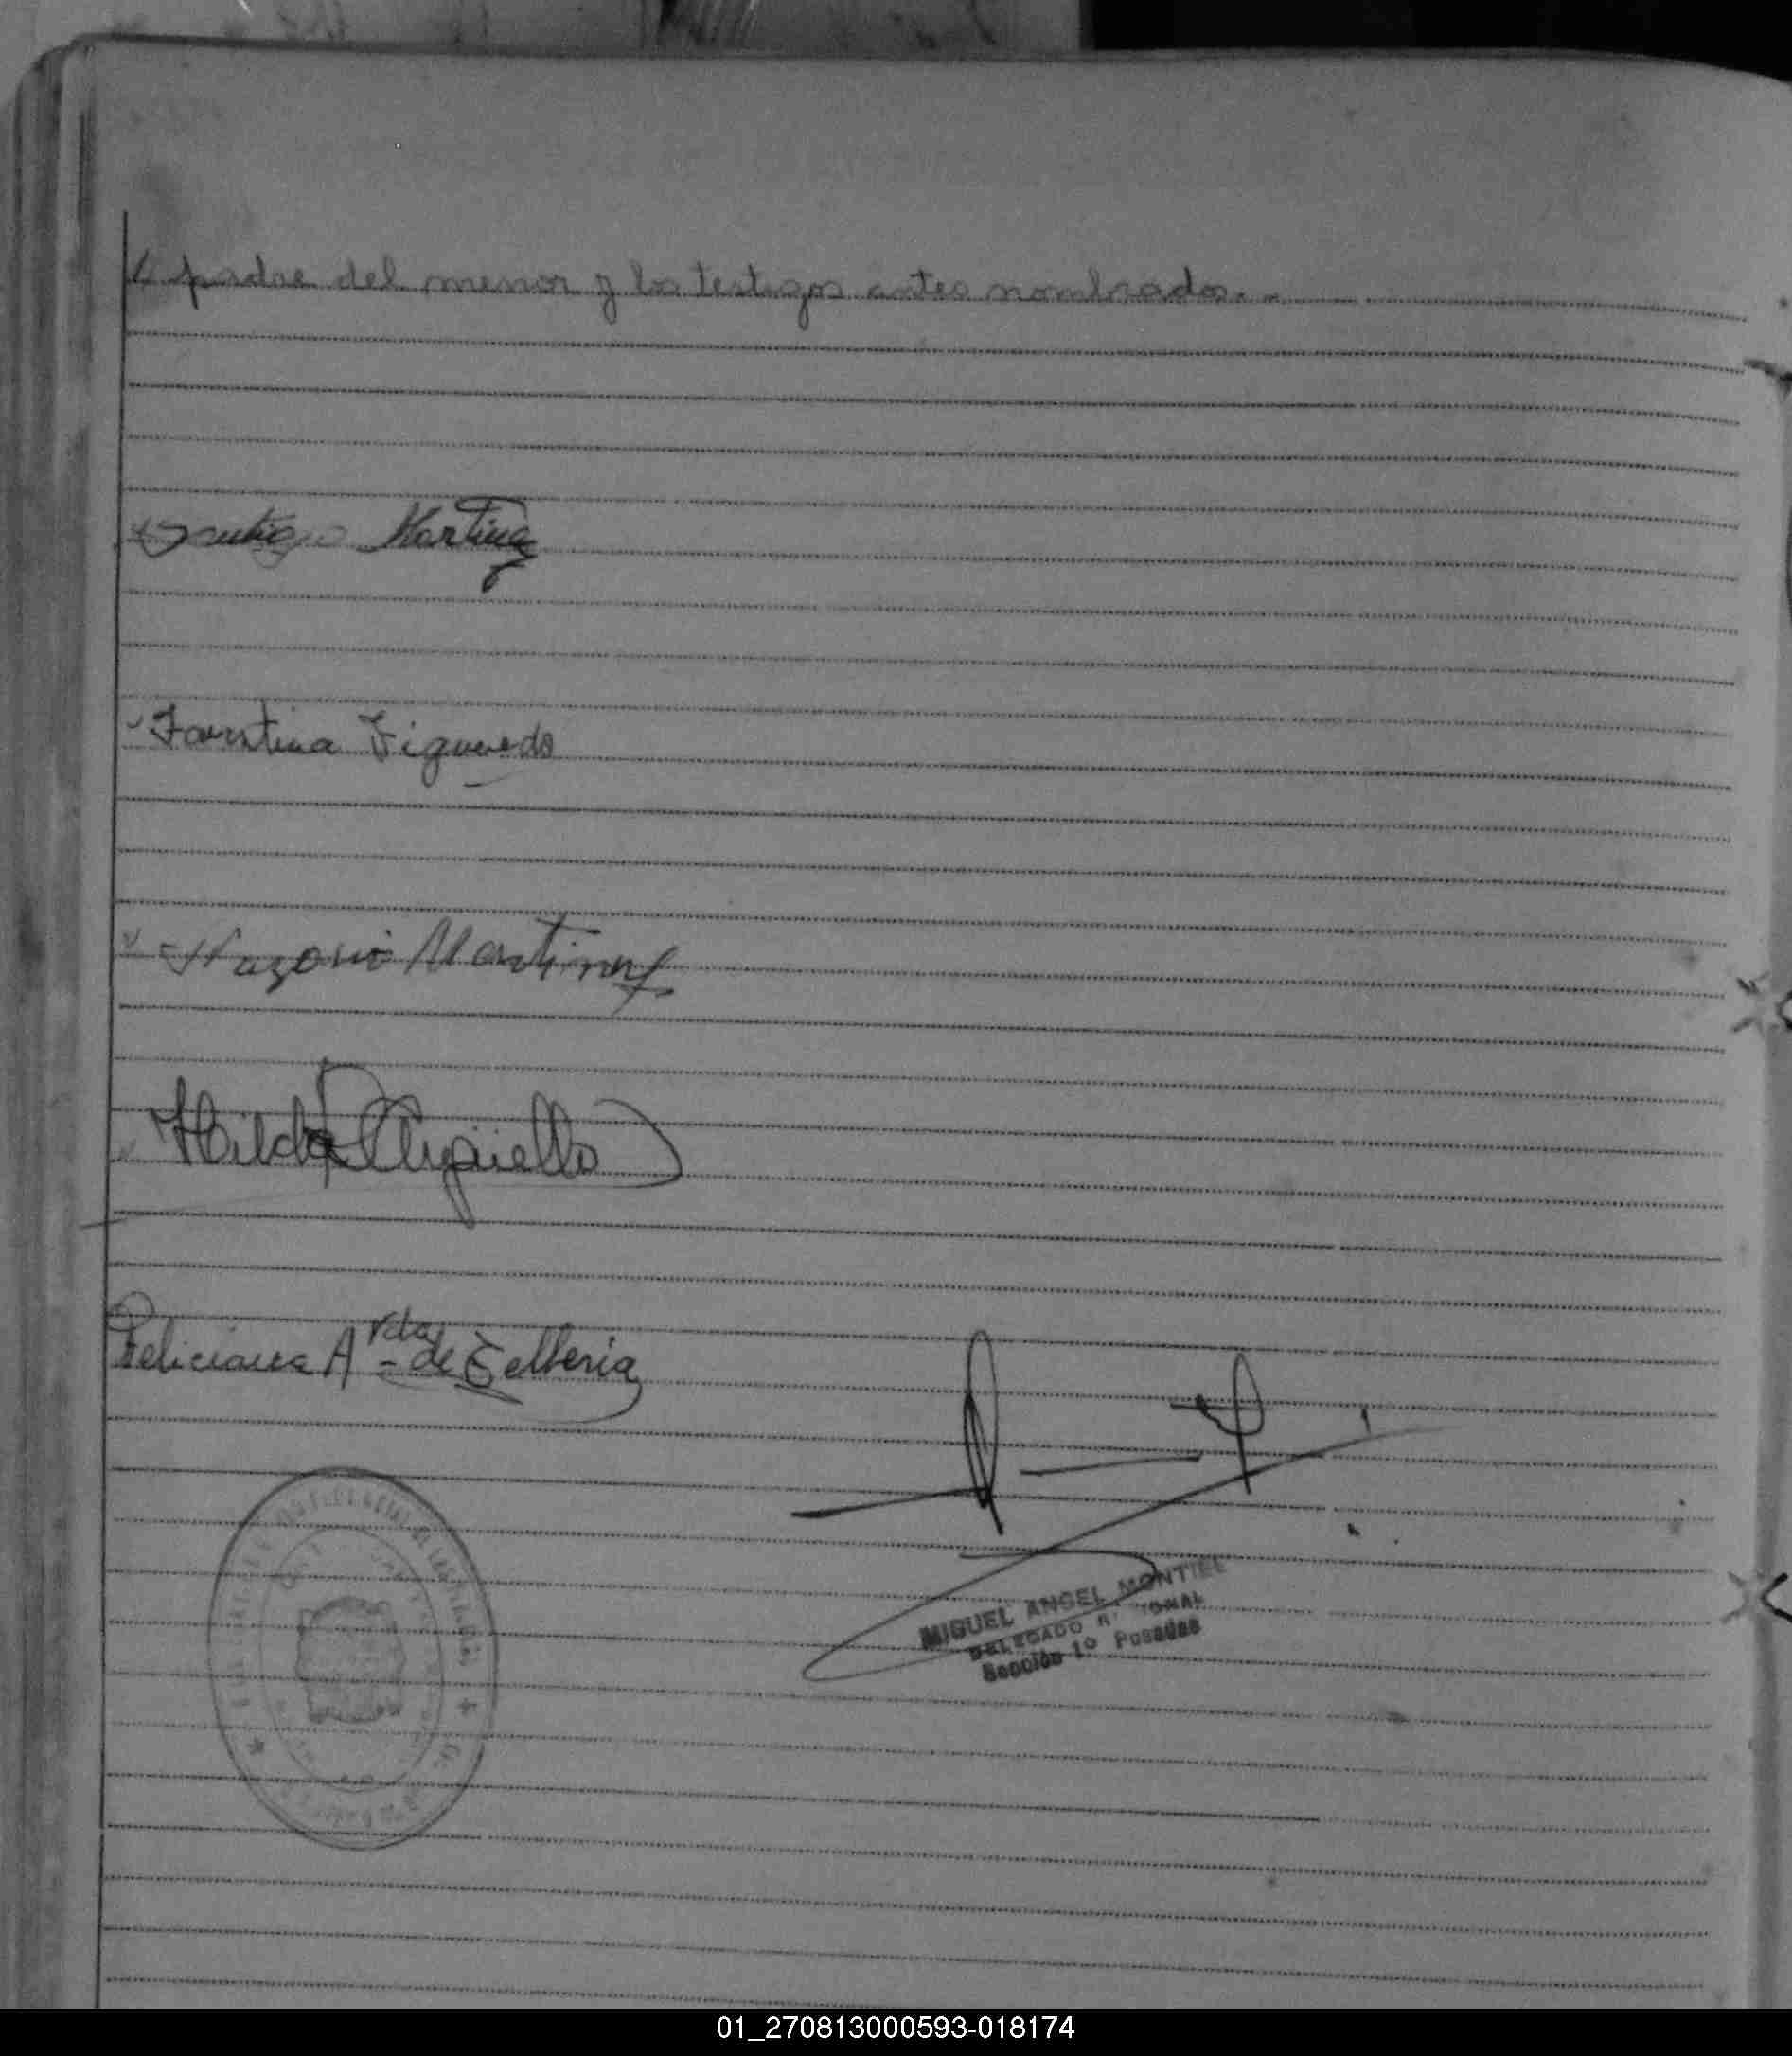 padre del menor y los testigos antes nombrados. -
Santiago Martinez
Faustina Figueredo
Nazario Martinez
Hilda
Feliciana A vda de Telleria
MIGUEL ANGEL MONTIEL
DELEGADO
Sección 1º Posadas
01_270813000593-018174